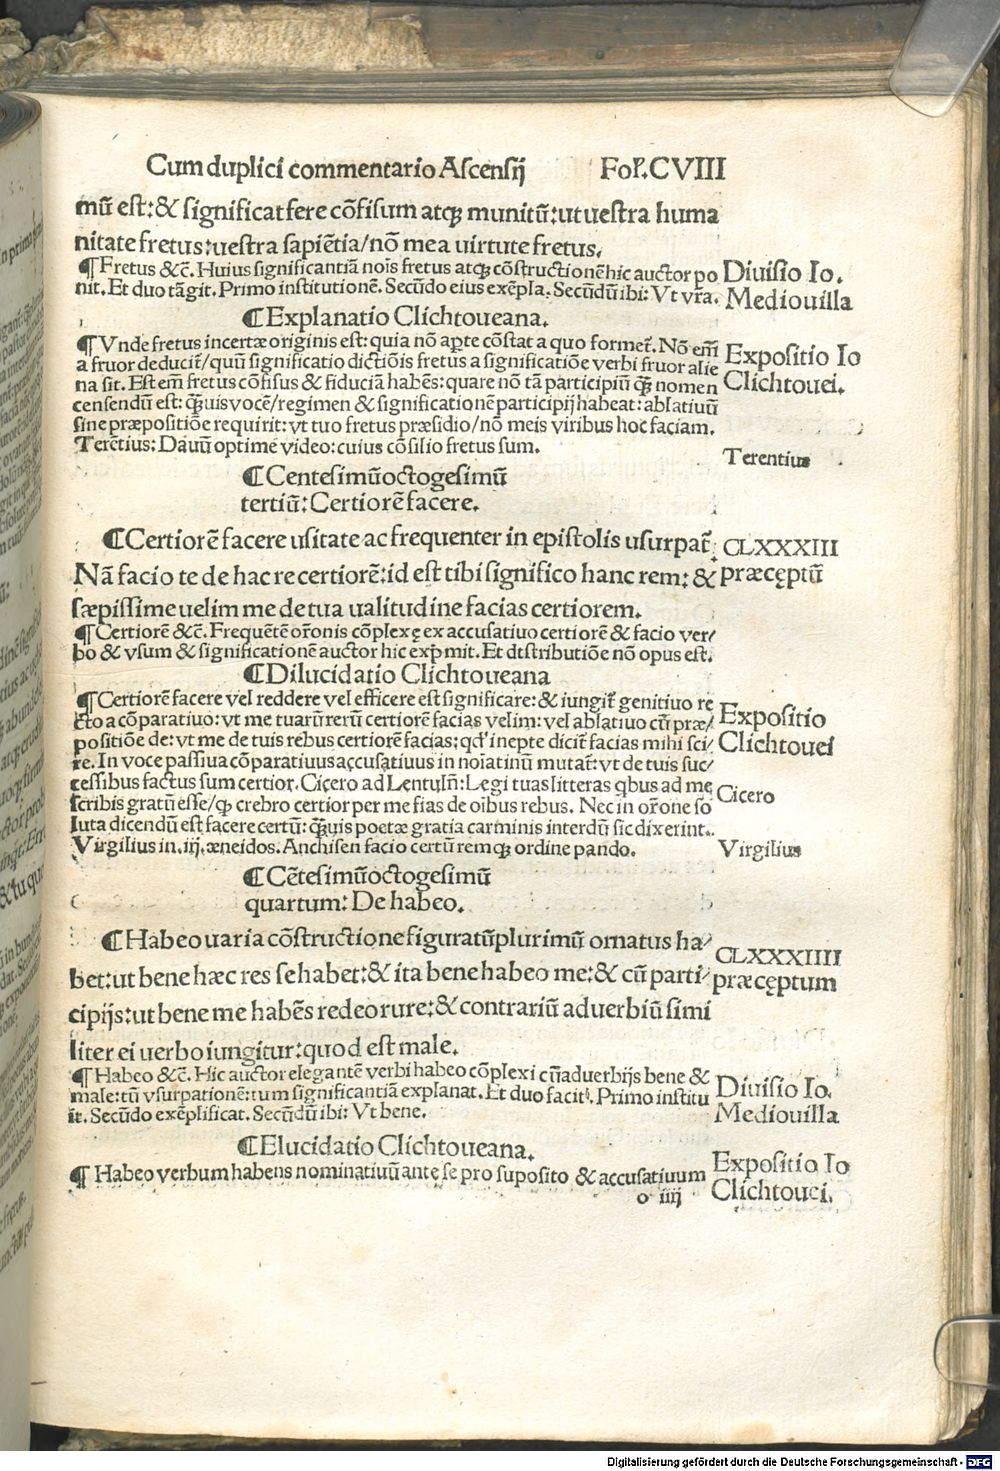 Cum duplici commentario Ascensij Fol. CVIII
mū est: & significat fere cōfisum atqꝫ munitū: ut uestra huma
nitate fretus: uestra sapiētia/nō mea uirtute fretus.
¶Fretus &c̄. Huius significantiā noīs fretus atqꝫ cōstructionē hic auctor po
nit. Et duo tāgit. Primo institutionē. Secūdo eius exēpla. Secūdū ibi: Vt vr̄a.
Diuisio Io.
Mediouilla
¶Explanatio Clichtoueana.
¶Vnde fretus incertæ originis est: quia nō aꝑte cōstat a quo formet᷑. Nō em̄
a fruor deducit᷑/quū significatio dictiōis fretus a significatiōe verbi fruor alie
na sit. Est em̄ fretus cōfisus & fiduciā habēs: quare nō tā participiū qꝫ̄ nomen
censendū est: qꝫ̄uis vocē/regimen & significationē participij habeat: ablatiuū
sine præpositiōe requirit: vt tuo fretus præsidio/nō meis viribus hoc faciam.
Terētius: Dauū optime video: cuius cōsilio fretus sum.
Expositio Io
Clichtouei.
Terentius
¶Centesimūoctogesimū
tertiū: Certiorē facere.
¶Certiorē facere usitate ac frequenter in epistolis usurpat᷑:
Nā facio te de hac re certiorē: id est tibi significo hanc rem: &
sæpissime uelim me de tua ualitudine facias certiorem.
CLXXXIII
præcęptū
¶Certiorē &c̄. Frequētē or̄onis cōplexę ex accusatiuo certiorē & facio ver/
bo & vsum & significationē auctor hic exp̄mit. Et dtstributiōe nō opus est.
¶Dilucidatio Clichtoueana
¶Certiorē facere vel reddere vel efficere est significare: & iungit᷑ genitiuo re
cto a cōparatiuo: vt me tuarū rerū certiorē facias velim: vel ablatiuo cū præ/
positiōe de: vt me de tuis rebus certiorē facias: qd' inepte dicit᷑ facias mihi sci/
re. In voce passiua cōparatiuus accusatiuus in noīatinū mutat᷑: vt de tuis suc/
cessibus factus sum certior. Cicero ad Lentulū: Legi tuas litteras qbus ad me
scribis gratū esse/qꝫ crebro certior per me fias de oībus rebus. Nec in or̄one so
luta dicendū est facere certū: qꝫ̄uis poetæ gratia carminis interdū sic dixerint.
Virgilius in. iij. æneidos. Anchisen facio certū remqꝫ ordine pando.
Expositio
Clichtouei
Cicero
Virgilius
¶Cētesimūoctogesimū
quartum: De habeo.
¶Habeo uaria cōstructione figuratū plurimū ornatus ha/
bet: ut bene hæc res se habet: & ita bene habeo me: & cū parti/
cipijs: ut bene me habēs redeo rure: & contrariū aduerbiū simi
liter ei uerbo iungitur: quod est male.
CLXXXIIII
præcęptum
¶Habeo &c̄. Hic auctor elegantē verbi habeo cōplexi cū aduerbijs bene &
male: tū vsurpationē: tum significantiā explanat. Et duo facit. Primo institu
it. Secūdo exēplificat. Secūdū ibi: Vt bene.
Diuisio Io.
Mediouilla
¶Elucidatio Clichtoueana.
¶Habeo verbum habens nominatiuū antę se pro suposito & accusatiuum
Expositio Io
Clichtouei.
o iiij
Digitalisierung gefördert durch die Deutsche Forschungsgemeinschaft - DFG